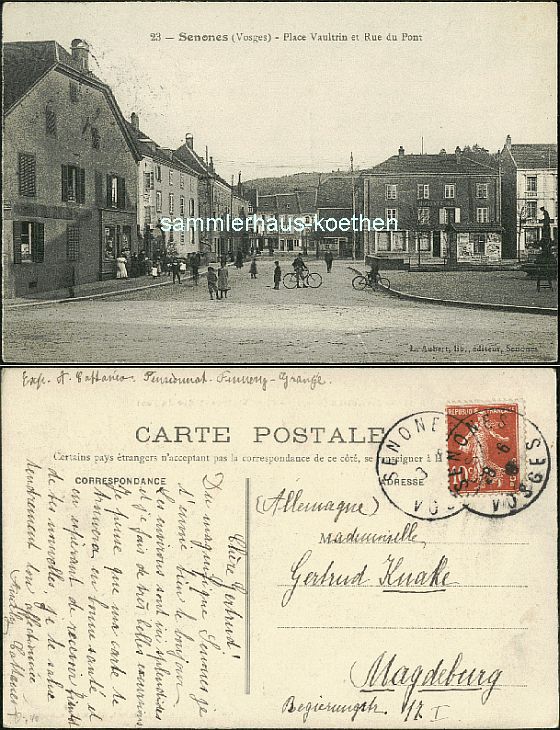 23 — Senones (Vosges) - Place Vaultrin et Rue du Pont
sammlerhaus-koethen
L. Aubert, lib., éditeur, Senones
CARTE POSTALE
Certains pays étrangers n'acceptant pas la correspondance de ce côté, se renseigner à
CORRESPONDANCE
ADRESSE
REPUBLIQUE FRANÇAISE
10
SENONES
VOSGES
Chère Gertrud!
Du magnifique Senones je
t'envoie bien le bonjour.
Les environs sont splendides
et je fais de très belles excursions
Je pense que ma carte te
trouvera en bonne santé et
en espérant de recevoir bientôt
de tes nouvelles, je te salue
tendrement ton affectionnée
(Allemagne)
Mademoiselle
Gertrud Knake
Magdeburg
Begierungstr. 17 I